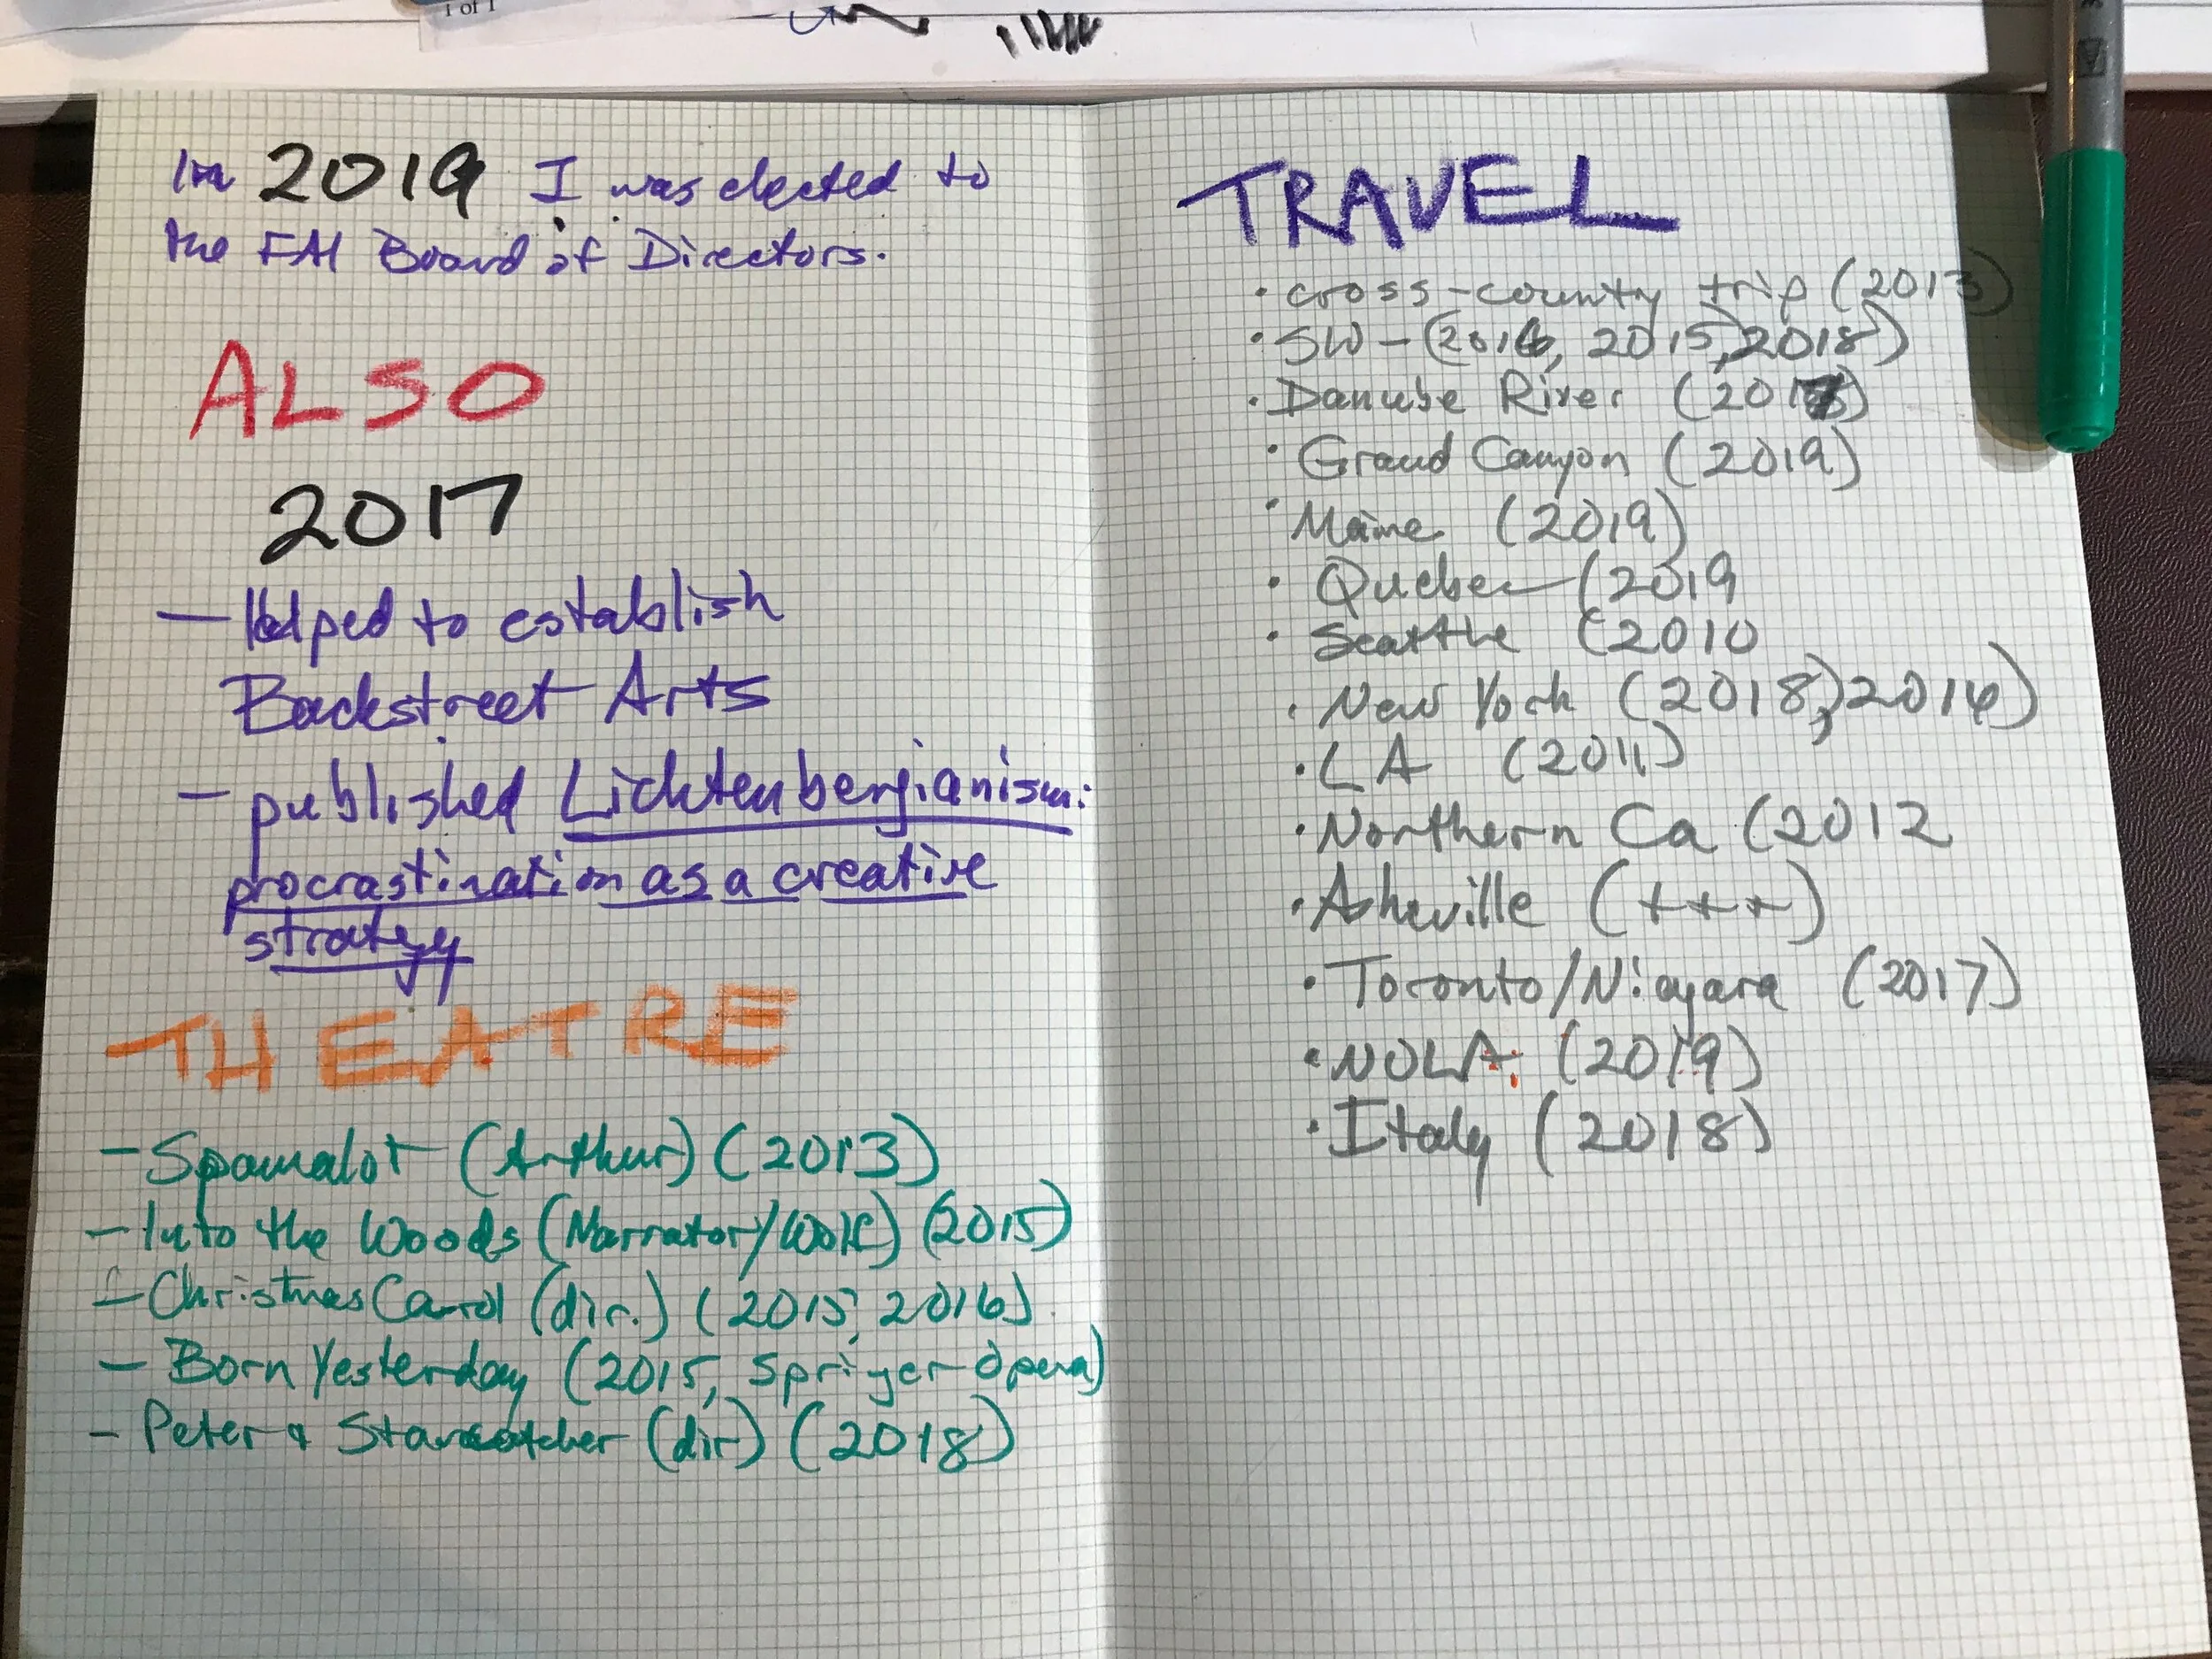 1 of 1
In 2019 I was elected to
the FAI Board of Directors.
ALSO
2017
– Helped to establish
Backstreet Arts
– published Lichtenbergianism:
procrastination as a creative
strategy
THEATRE
– Spamalot (Arthur) (2013)
– Into the Woods (Narrator/Wolf) (2015)
– Christmas Carol (dir.) (2015, 2016)
– Born Yesterday (2015, Springer Opera)
– Peter & Starcatcher (dir) (2018)
TRAVEL
• cross-county trip (2013)
• SW – (2016, 2015, 2018)
• Danube River (2017)
• Grand Canyon (2019)
• Maine (2019)
• Quebec (2019
• Seattle (2010
• New York (2018), 2016)
• LA (2011)
• Northern Ca (2012
• Asheville (+++)
• Toronto/Niagara (2017)
• NOLA (2019)
• Italy (2018)